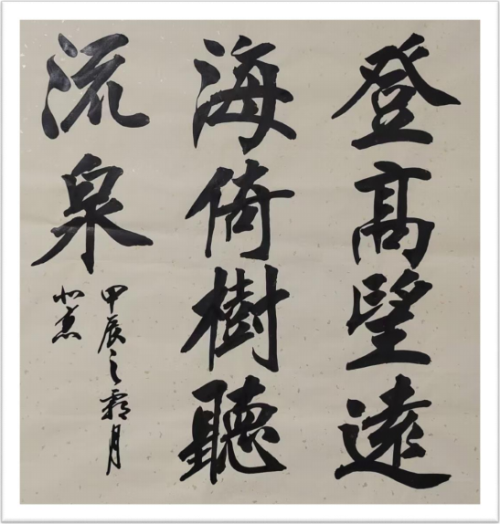 登髙望遠
海倚樹聽
流泉
甲辰之霜月